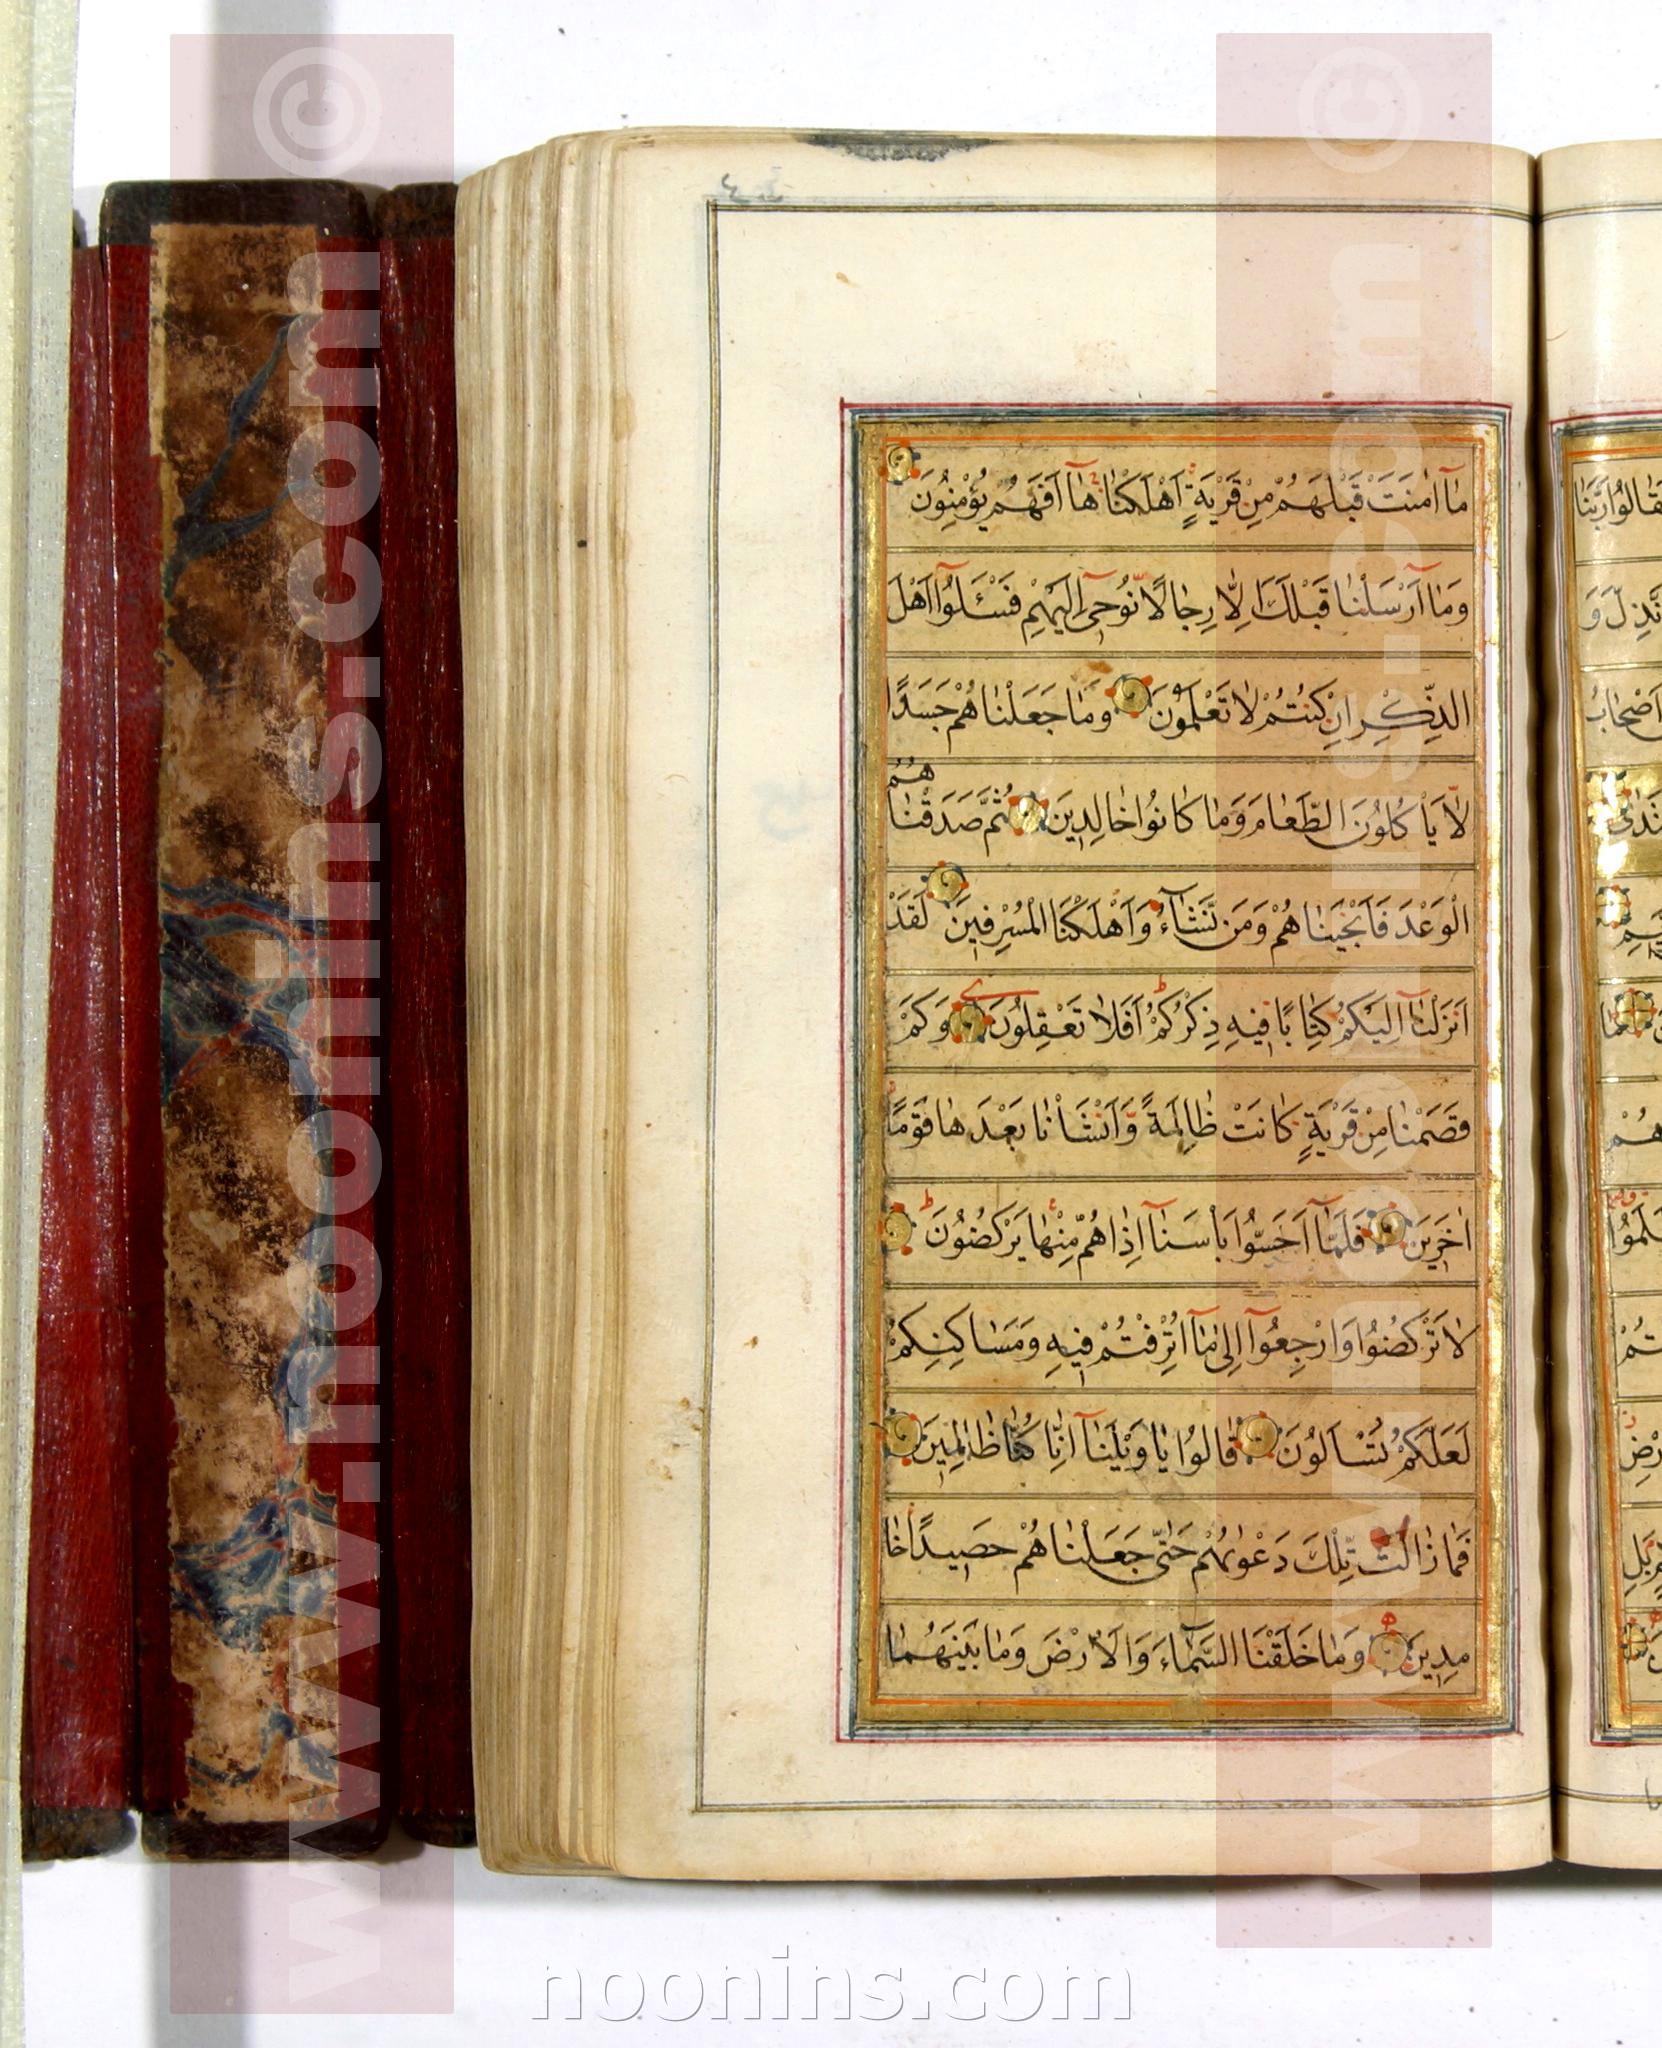 مَا اٰمَنَتْ قَبْلَهُمْ مِنْ قَرْيَةٍ اَهْلَكْنَاهَا اَفَهُمْ يُؤْمِنُونَ
وَمَا اَرْسَلْنَا قَبْلَكَ اِلَّا رِجَالًا نُوحِى اِلَيْهِمْ فَسْـَٔلُوا اَهْلَ
الذِّكْرِ اِنْ كُنْتُمْ لَا تَعْلَمُونَ وَمَا جَعَلْنَاهُمْ جَسَدًا
لَا يَاْكُلُونَ الطَّعَامَ وَمَا كَانُوا خَالِدِينَ ثُمَّ صَدَقْنَاهُمُ
الْوَعْدَ فَاَنْجَيْنَاهُمْ وَمَنْ نَشَآءُ وَاَهْلَكْنَا الْمُسْرِفِينَ لَقَدْ
اَنْزَلْنَا اِلَيْكُمْ كِتَابًا فِيهِ ذِكْرُكُمْ اَفَلَا تَعْقِلُونَ وَكَمْ
قَصَمْنَا مِنْ قَرْيَةٍ كَانَتْ ظَالِمَةً وَاَنْشَاْنَا بَعْدَهَا قَوْمًا
اٰخَرِينَ فَلَمَّا اَحَسُّوا بَاْسَنَا اِذَا هُمْ مِنْهَا يَرْكُضُونَ
لَا تَرْكُضُوا وَارْجِعُوا اِلٰى مَا اُتْرِفْتُمْ فِيهِ وَمَسَاكِنِكُمْ
لَعَلَّكُمْ تُسْاَلُونَ قَالُوا يَا وَيْلَنَا اِنَّا كُنَّا ظَالِمِينَ
فَمَا زَالَتْ تِلْكَ دَعْوٰيهُمْ حَتّٰى جَعَلْنَاهُمْ حَصِيدًا خَا
مِدِينَ وَمَا خَلَقْنَا السَّمَآءَ وَالْاَرْضَ وَمَا بَيْنَهُمَا
www.noonins.com ©
www.noonins.com ©
noonins.com